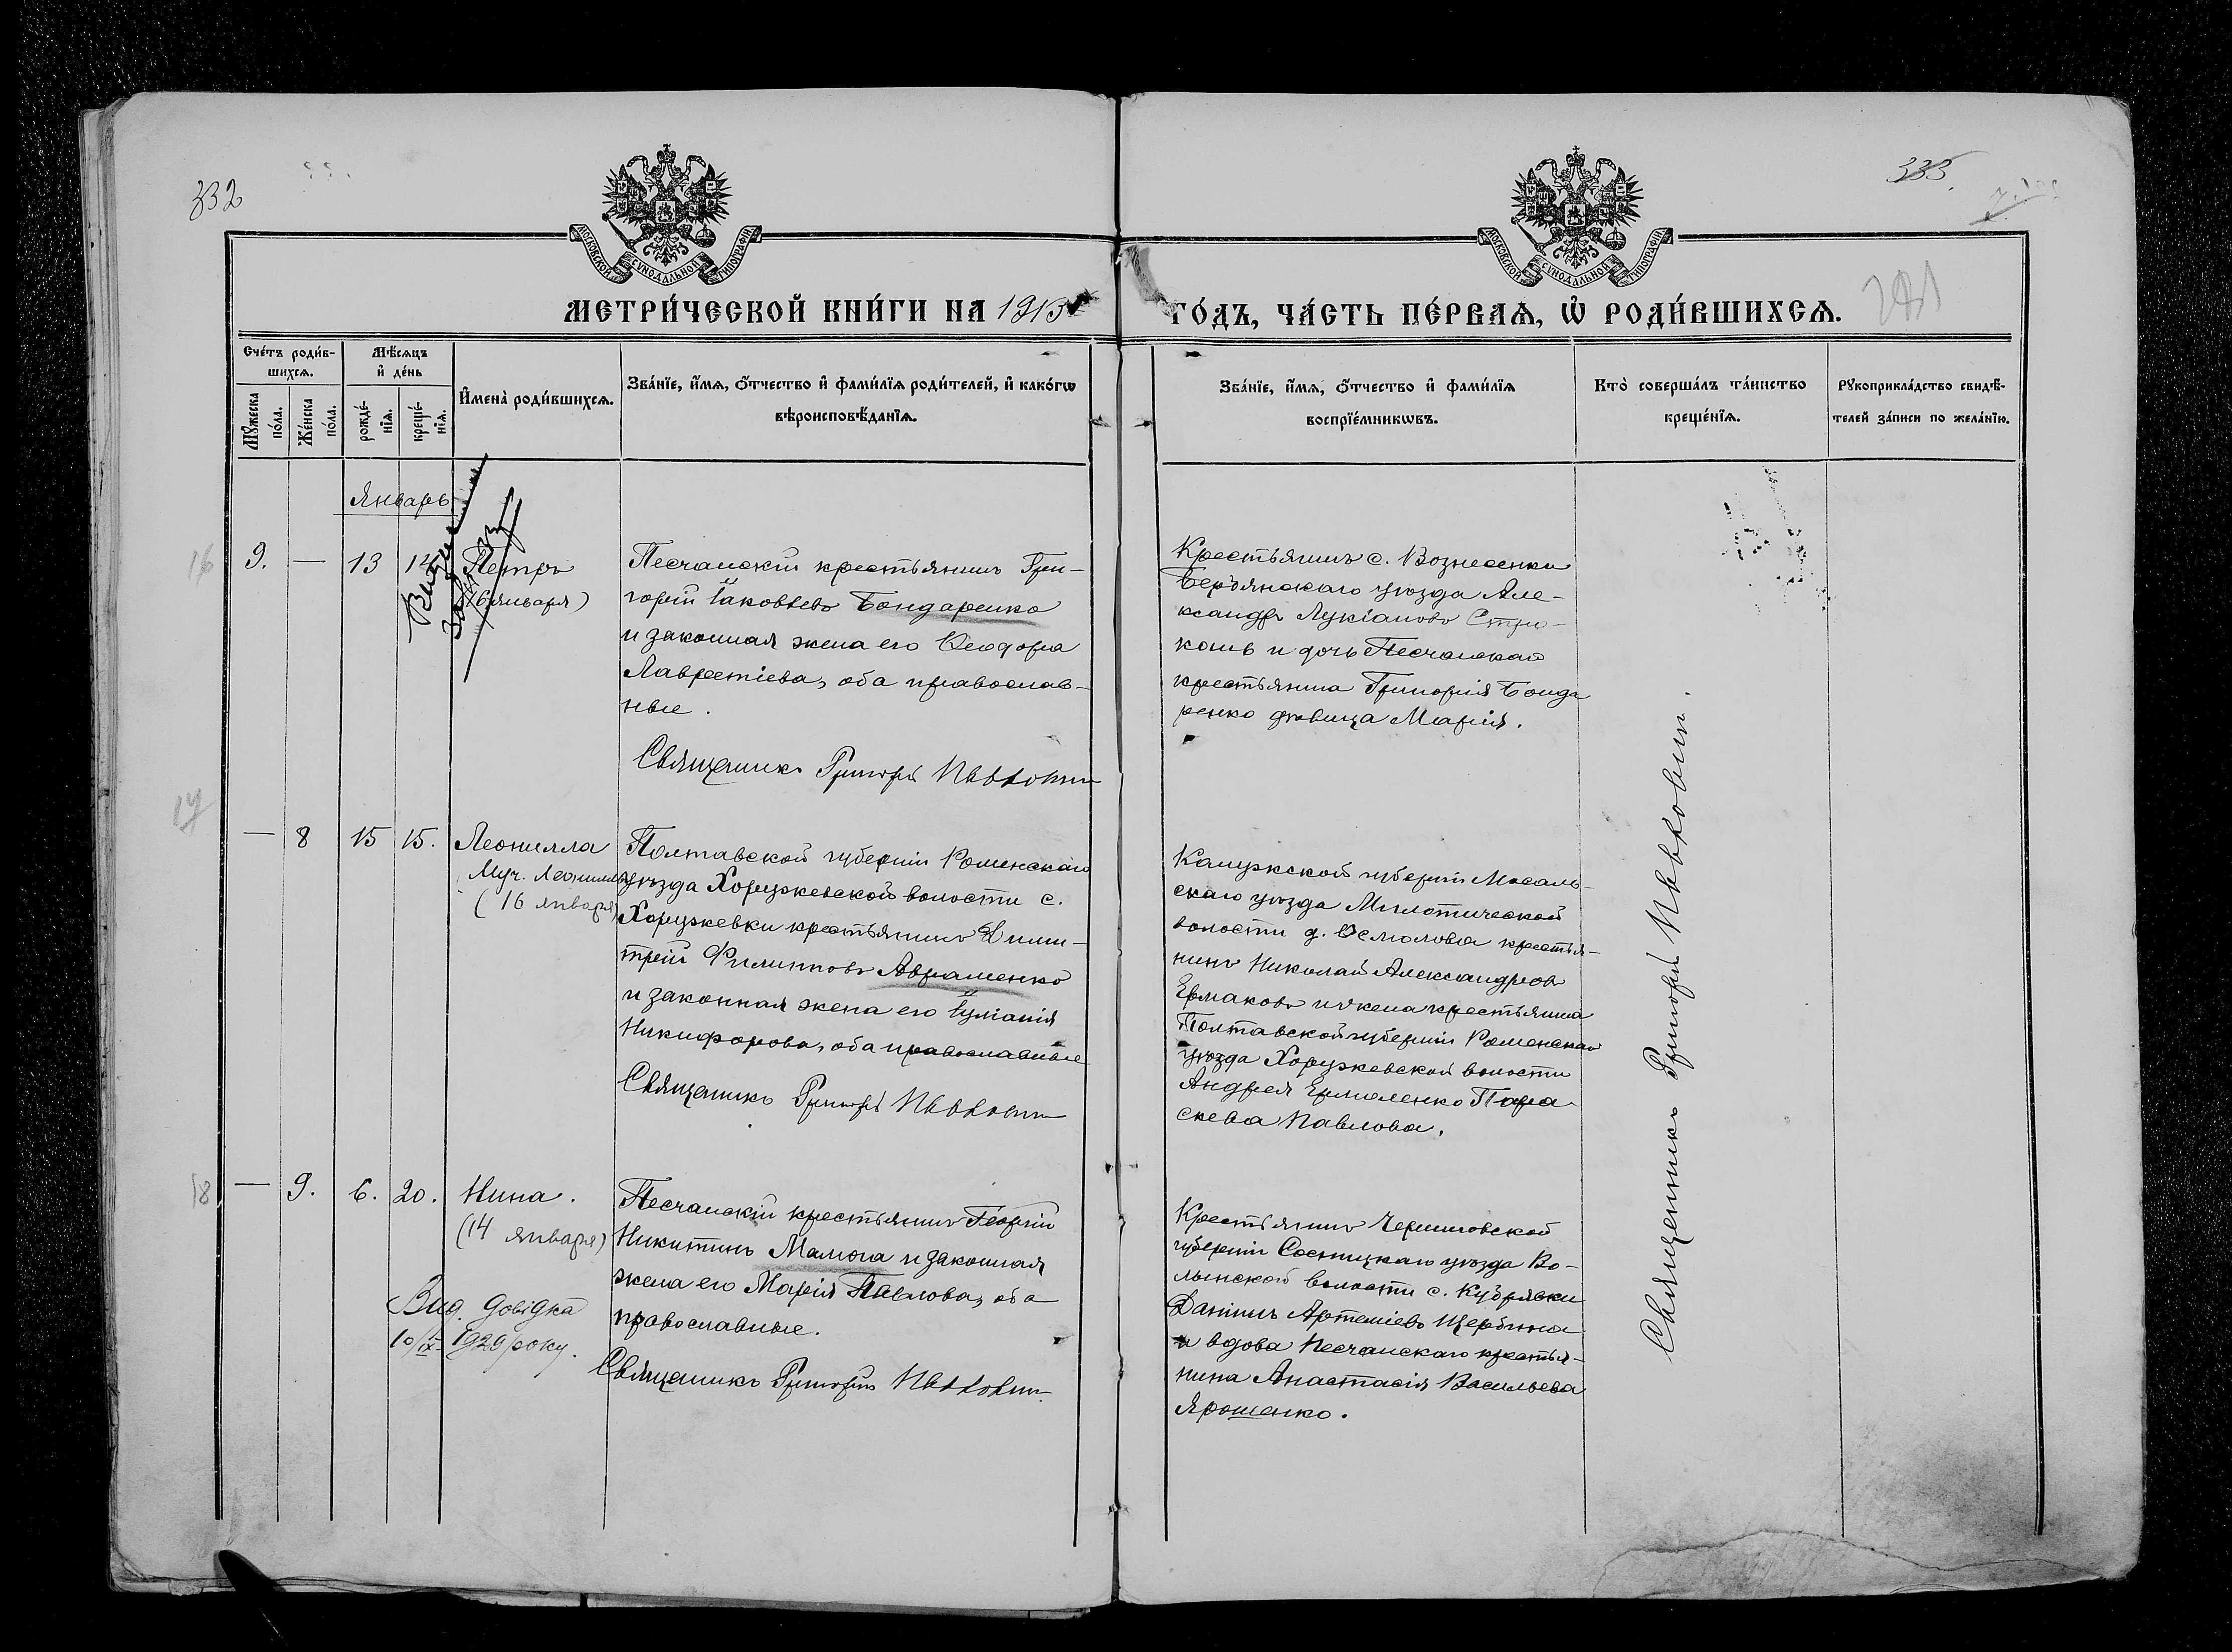 332
333.
281
МОСКОВСКОЙ СУНОДАЛЬНОЙ ТИПОГРАФІИ
МОСКОВСКОЙ СУНОДАЛЬНОЙ ТИПОГРАФІИ
МЕТРИ́ЧЕСКОЙ КНИ́ГИ НА 1913
ГО́ДЪ, ЧА́СТЬ ПЕ́РВАѦ, Ѿ РОДИ́ВШИХСѦ.
Сче́тъ роди́в-
шихсѧ.
Мѣ́сѧцъ
и҆ де́нь
Мꙋ́жеска
по́ла.
Же́нска
по́ла.
рожде́-
нїѧ.
креще́-
нїѧ.
И҆мена̀ роди́вшихсѧ.
Зва́нїе, и҆́мѧ, ѻ҆́тчество и҆ фами́лїѧ роди́телей, и҆ како́гѡ
вѣроисповѣ́данїѧ.
Зва́нїе, и҆́мѧ, ѻ҆́тчество и҆ фами́лїѧ
воспрїе́мникѡвъ.
Кто̀ соверша́лъ та́инство
креще́нїѧ.
Рꙋкоприкла́дство свидѣ́-
телей за́писи по жела́нїю.
Январь
16
9. — 13 14 Петръ
(16 января)
Песчанскій крестьянинъ Гри-
горій Іаковлевъ Бондаренко
и законная жена его Ѳеодора
Лаврентіева, оба православ-
ные.
Священникъ Григорій Ивахович
Крестьянинъ с. Вознесенки
Бердянскаго уѣзда Але-
ксандръ Лукіановъ Стрю-
конь и дочь Песчанскаго
крестьянина Григорія Бонда
ренко дѣвица Марія.
17
— 8 15 15. Леонилла
Муч. Леониллы
(16 января)
Полтавской губерніи Роменскаго
уѣзда Хоружевской волости с.
Хоружевки крестьянинъ Дими-
трій Филипповъ Авраменко
и законная жена его Іуліанія
Никифорова, оба православные
Священникъ Григорій
Калужской губерніи Мосаль-
скаго уѣзда Милотической
волости д. крестья-
нинъ Николай Александровъ
Ермаковъ и жена крестьянина
Полтавской губерніи Роменскаго
уѣзда Хоружевской волости
Андрея Ермоленко Пара-
скева Павлова.
18
— 9. 6. 20. Нина.
(14 января)
Вид. довідка
10/IX 1929 року.
Песчанскій крестьянинъ Георгій
Никитинъ Малюга и законная
жена его Марія Павлова, оба
православные.
Священникъ Григорій
Крестьянинъ Черниговской
губерніи Сосницкаго уѣзда Во-
лынской волости с. Кудрявки
Даніилъ Артеміевъ Щербина
и вдова Песчанскаго крестья-
нина Анастасія Васильева
Ярошенко.
Священникъ Григорій